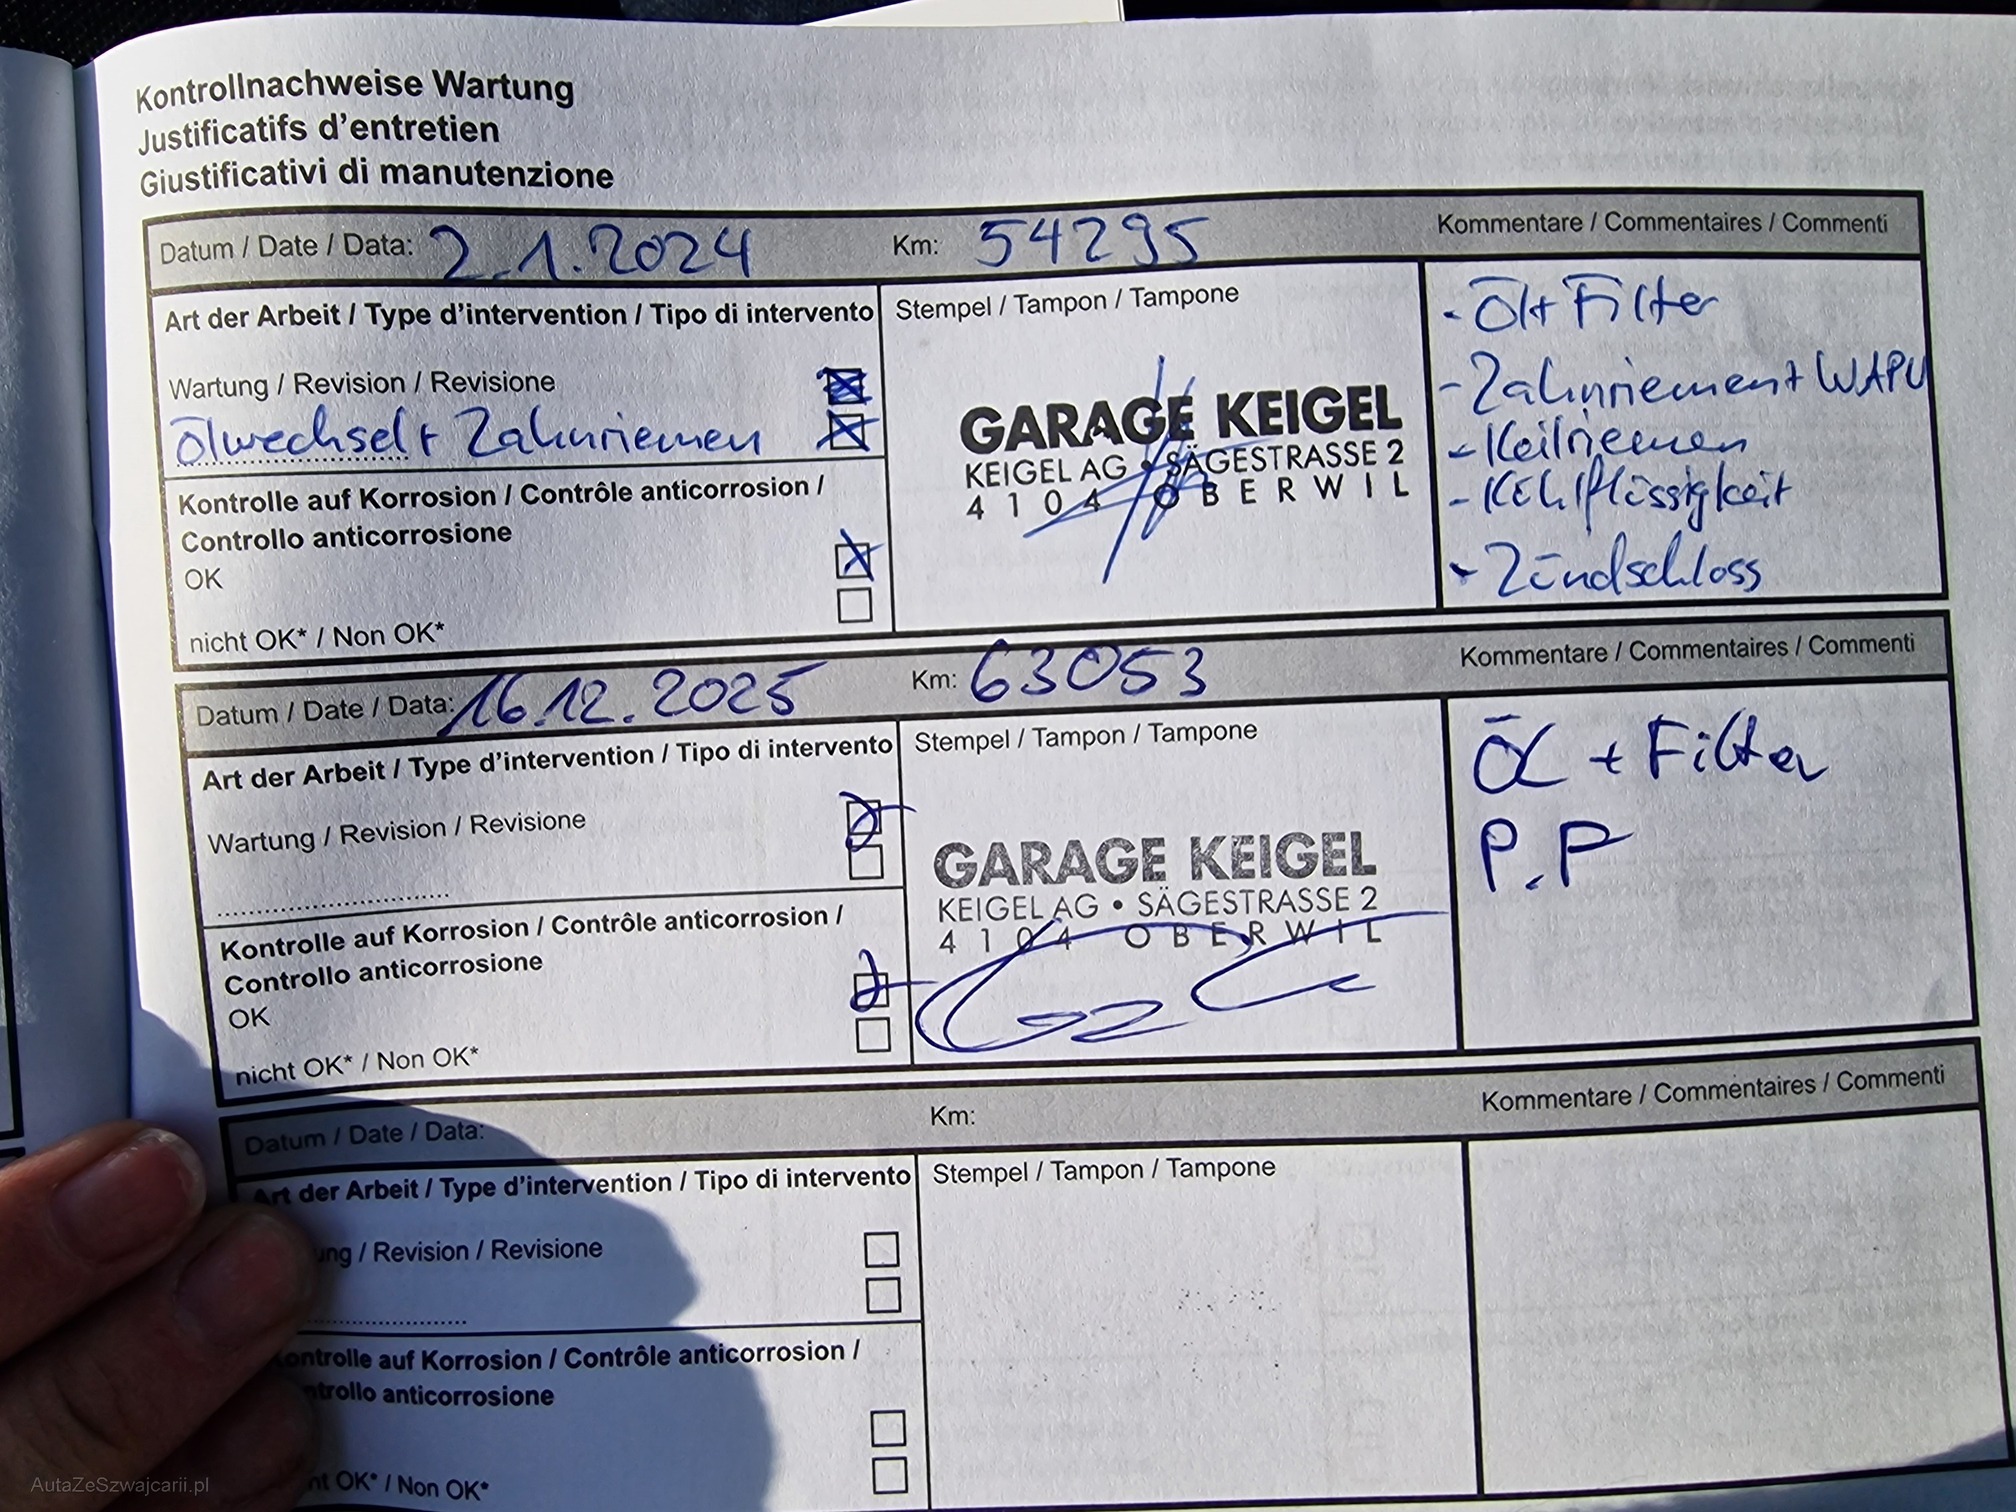 Kontrollnachweise Wartung
Justificatifs d'entretien
Giustificativi di manutenzione
Datum / Date / Data: 2.1.2024 Km: 54295 Kommentare / Commentaires / Commenti
Art der Arbeit / Type d'intervention / Tipo di intervento
Stempel / Tampon / Tampone
Wartung / Revision / Revisione
Ölwechsel + Zahnriemen
Kontrolle auf Korrosion / Contrôle anticorrosion /
Controllo anticorrosione
OK
nicht OK* / Non OK*
GARAGE KEIGEL
KEIGEL AG • SÄGESTRASSE 2
4104 OBERWIL
- Öl+ Filter
- Zahnriemen + WAPU
- Keilriemen
- Kühlflüssigkeit
- Zündschloss
Datum / Date / Data: 16.12.2025 Km: 63053 Kommentare / Commentaires / Commenti
Art der Arbeit / Type d'intervention / Tipo di intervento
Stempel / Tampon / Tampone
Wartung / Revision / Revisione
Kontrolle auf Korrosion / Contrôle anticorrosion /
Controllo anticorrosione
OK
nicht OK* / Non OK*
GARAGE KEIGEL
KEIGEL AG • SÄGESTRASSE 2
4104 OBERWIL
Öl + Filter
P.P
Datum / Date / Data: Km: Kommentare / Commentaires / Commenti
Art der Arbeit / Type d'intervention / Tipo di intervento
Stempel / Tampon / Tampone
ung / Revision / Revisione
ontrolle auf Korrosion / Contrôle anticorrosion /
ntrollo anticorrosione
nt OK* / Non OK*
AutaZeSzwajcarii.pl